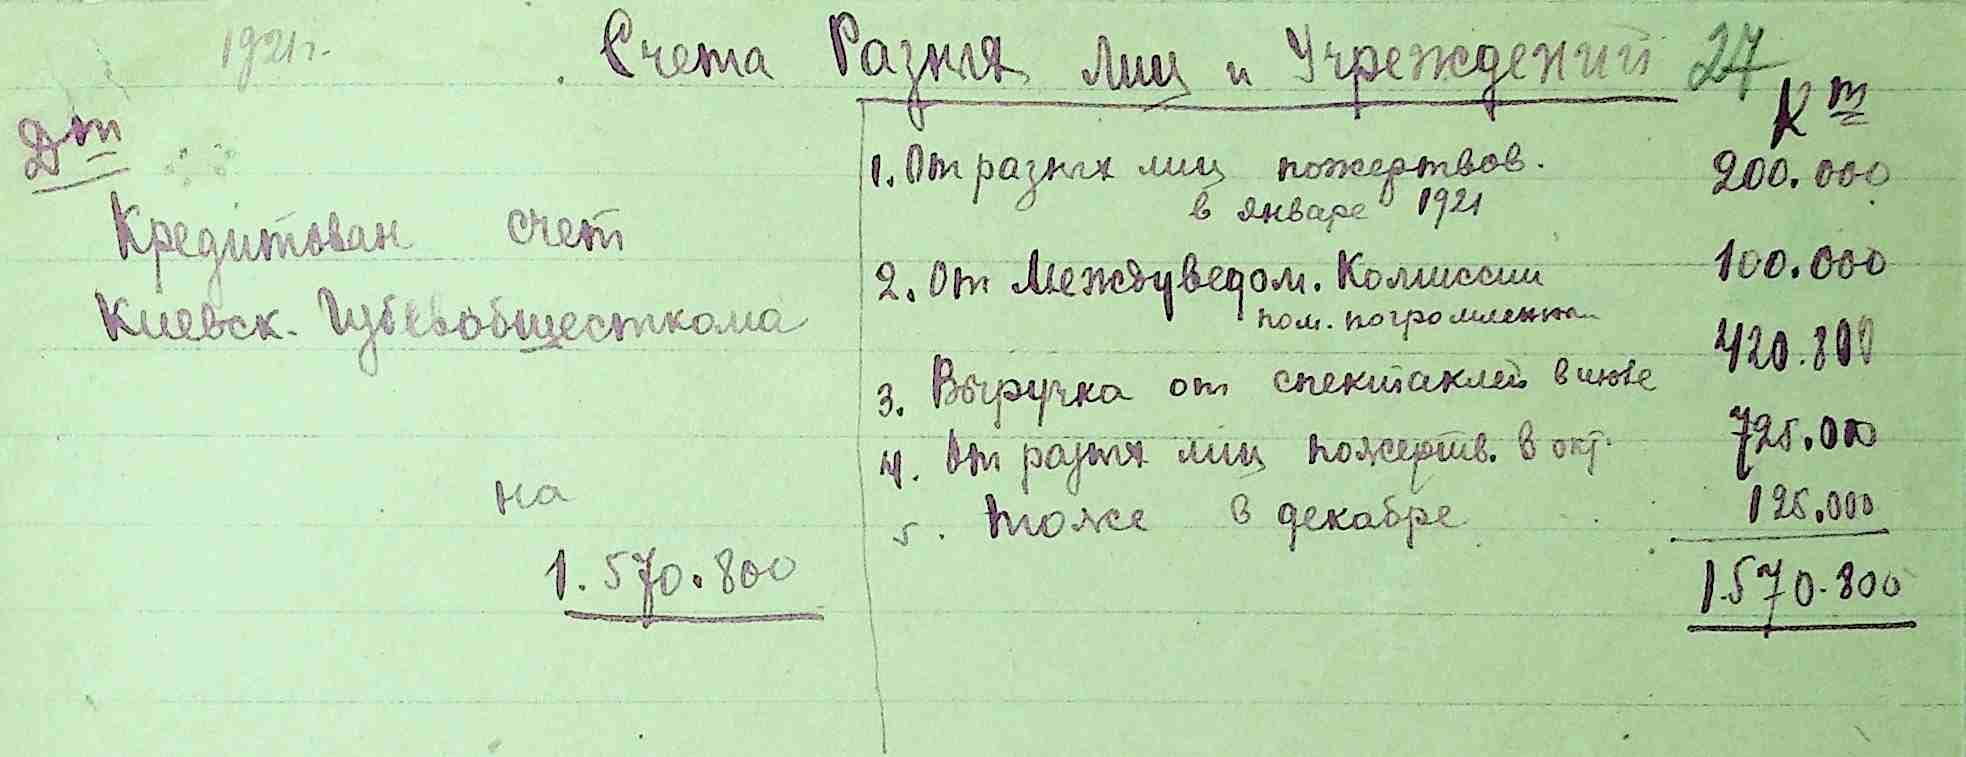 1921 г.
Счета Разных лиц и Учреждений 27
Дт
Кт
Кредитован счет
Киевск. Губевобщесткома
на
1.570.800
1. От разных лиц пожертвов. 200.000
в январе 1921
2. От Междуведом. Комиссии 100.000
пом. погромленным
3. Выручка от спектаклей в июле 420.800
4. От разных лиц пожертв. в окт. 725.000
5. тоже в декабре 125.000
1.570.800